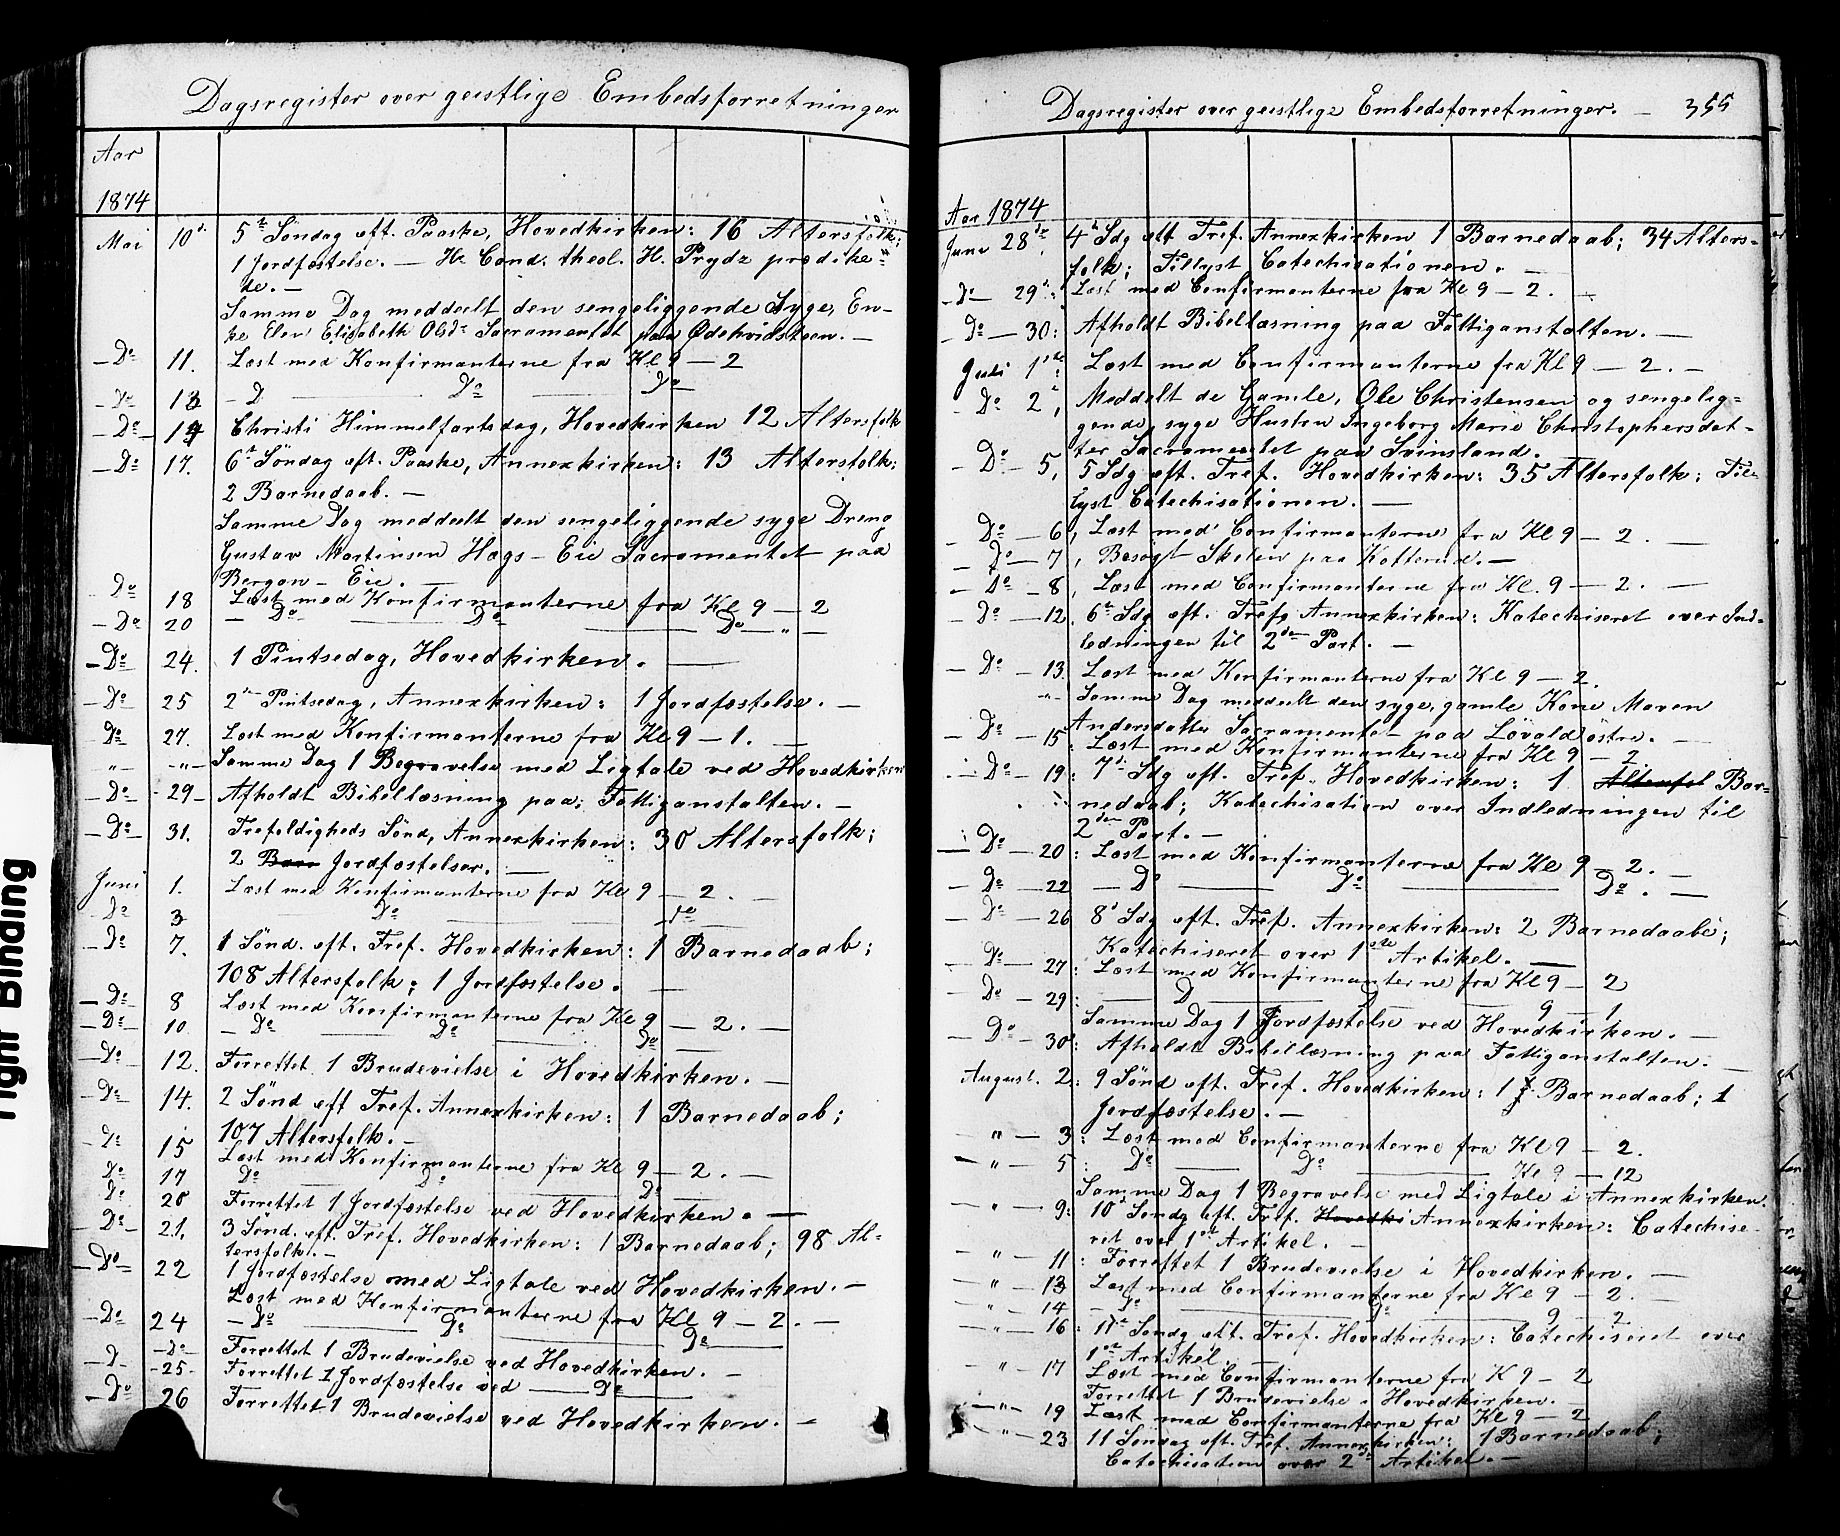 Dagsregister over geistlige Embedsforretninger
Aar
1874
Mai 10de 5te Søndag eft. Paaske, Hovedkirken: 16 Altersfolk;
1 Jordfæstelse. — Hr Cand. theol. H. Prydz prædike-
de. —
Samme Dag meddeelt den sengeliggende Syge, En-
ke Elen Elisabeth Olsdr Sacramentet paa Ødekvidsteen. —
— Do 11. Læst med Konfirmanterne fra Kl 9 — 2
— Do 13 — D — Do — Do
— Do — 14 Christi Himmelfartsdag, Hovedkirken 12 Altersfolk
— Do 17. 6te Søndag eft. Paaske, Annexkirken: 13 Altersfolk;
2 Barnedaab. —
Samme Dag meddeelt den sengeliggende syge Dreng
Gustav Martinsen Hags-Eie Sacramentet paa
Bergan-Eie. —
Do 18 Læst med Konfirmanterne fra Kl 9 — 2
— Do 20 — Do — Do — Do — " —
— Do 24. 1 Pintsedag, Hovedkirken. —
— Do 25 2den Pintsedag, Annexkirken: 1 Jordfæstelse. —
Do 27. Læst med Konfirmanterne fra Kl 9 — 1. —
" — " — Samme Dag 1 Begravelse med Ligtale ved Hovedkirken
— Do — 29 — Afholdt Bibellæsning paa Fattiganstalten. —
— Do — 31. Trefoldigheds Sønd, Annexkirken: 30 Altersfolk;
2 Barn Jordfæstelser. —
Juni 1. Læst med Konfirmanterne fra Kl 9 — 2. —
Do 3 — Do — Do
— Do 7. 1 Sønd. eft. Tref. Hovedkirken: 1 Barnedaab;
108 Altersfolk; 1 Jordfæstelse. —
— Do — 8 Læst med Konfirmanterne fra Kl 9 — 2. —
— Do — 10. — Do — Do — Do —
— Do 12. Forrettet 1 Brudevielse i Hovedkirken. —
— Do 14. 2 Sønd eft Tref. Annexkirken: 1 Barnedaab;
107 Altersfolk. —
— Do 15 Læst med Konfirmanterne fra Kl 9 — 2. —
Do 17 Do — Do — Do —
Do 20 Forrettet 1 Jordfæstelse ved Hovedkirken. —
— Do — 21. 3 Sønd. eft. Tref. Hovedkirken: 1 Barnedaab; 98 Al-
tersfolk. —
— Do — 22 1 Jordfæstelse med Ligtale ved Hovedkirken. —
Læst med Konfirmanterne fra Kl 9 — 2. —
— Do 24 — Do — Do — Do —
— Do — Forrettet 1 Brudevielse ved Hovedkirken. —
— D — 25 — Forrettet 1 Jordfæstelse ved — Do —
— Do 26 Forrettet 1 Brudevielse ved Hovedkirken. —
Dagsregister over geistlige Embedsforretninger. — 355
Aar 1874
Juni 28de 4de Sdg eft Tref. Annexkirken 1 Barnedaab; 34 Alters-
folk; Tillyst Catechisationen. —
— Do — 29de: Læst med Confirmanterne fra Kl 9 — 2. —
— Do — 30: Afholdt Bibellæsning paa Fattiganstalten. —
Juli 1ste: Læst med Confirmanterne fra Kl 9 — 2. —
— Do 2, Meddelt de Gamle, Ole Christensen og sengelig-
gende, syge Hustru Ingeborg Marie Christophersdat-
ter Sacramentet paa Svinsland.
— Do — 5, 5 Sdg eft. Tref. Hovedkirken: 35 Altersfolk; Til-
lyst Catechisationen. —
— Do — 6, Læst med Confirmanterne fra Kl 9 — 2. —
— Do — 7, Besøgt Skolen paa Kotterud. —
— Do — 8, Læst med Confirmanterne fra Kl. 9 — 2. —
— Do — 12. 6te Sdg eft. Tref. Annexkirken: Katechiseret over Ind-
ledningen til 2den Part. —
— Do — 13. Læst med Konfirmanterne fra Kl 9 — 2.
" Samme Dag meddeelt den syge, gamle Kone Maren
Andersdatter Sacramentet paa Løvald østre. —
— Do — 15: Læst med Konfirmanterne fra Kl 9 — 2
— Do — 19: 7de Sdg eft. Tref. Hovedkirken: 1 Altersfol Bar-
nedaab; Katechisation over Indledningen til
2den Part. —
— Do — 20: Læst med Konfirmanterne fra Kl 9 — 2. —
— Do — 22 — Do — Do — Do. —
— Do — 26 8de Sdg eft. Tref. Annexkirken: 2 Barnedaabe;
Katechiseret over 1ste Artikel. —
— Do — 27: Læst med Konfirmanterne fra Kl 9 — 2
— Do — 29: — D — D — 9 — 1
Samme Dag 1 Jordfæstelse ved Hovedkirken. —
— Do — 30: Afholdt Bibellæsning paa Fattiganstalten. —
August. 2: 9 Sønd eft. Tref. Hovedkirken: 1 J. Barnedaab; 1
Jordfæstelse. —
" — 3: Læst med Confirmanterne fra Kl 9 — 2.
— " — 5: Do — Do — Kl 9 — 12
Samme Dag 1 Begravelse med Ligtale i Annexkirken.
— " — 9: 10de Søndg eft. Tref. Hovedki Annexkirken: Catechise-
ret over 1ste Artikel. —
— " 11: Forrettet 1 Brudevielse i Hovedkirken. —
— " — 13 Læst med Confirmanterne fra Kl 9 — 2. —
— " — 14 — Do — Do — 9 — 2
— " — 16: 11te Søndg eft. Tref. Hovedkirken: Catechiseret over
1ste Artikel. —
— " — 17 Læst med Confirmanterne fra K 9 — 2
Forrettet 1 Brudevielse i Hovedkirken. —
— " — 19 Læst med Confirmanterne fra Kl 9 — 2
— " — 23 11 Søndag eft. Tref. Annexkirken: 1 Barnedaab;
Catechisation over 2den Artikel. —
Tight Binding